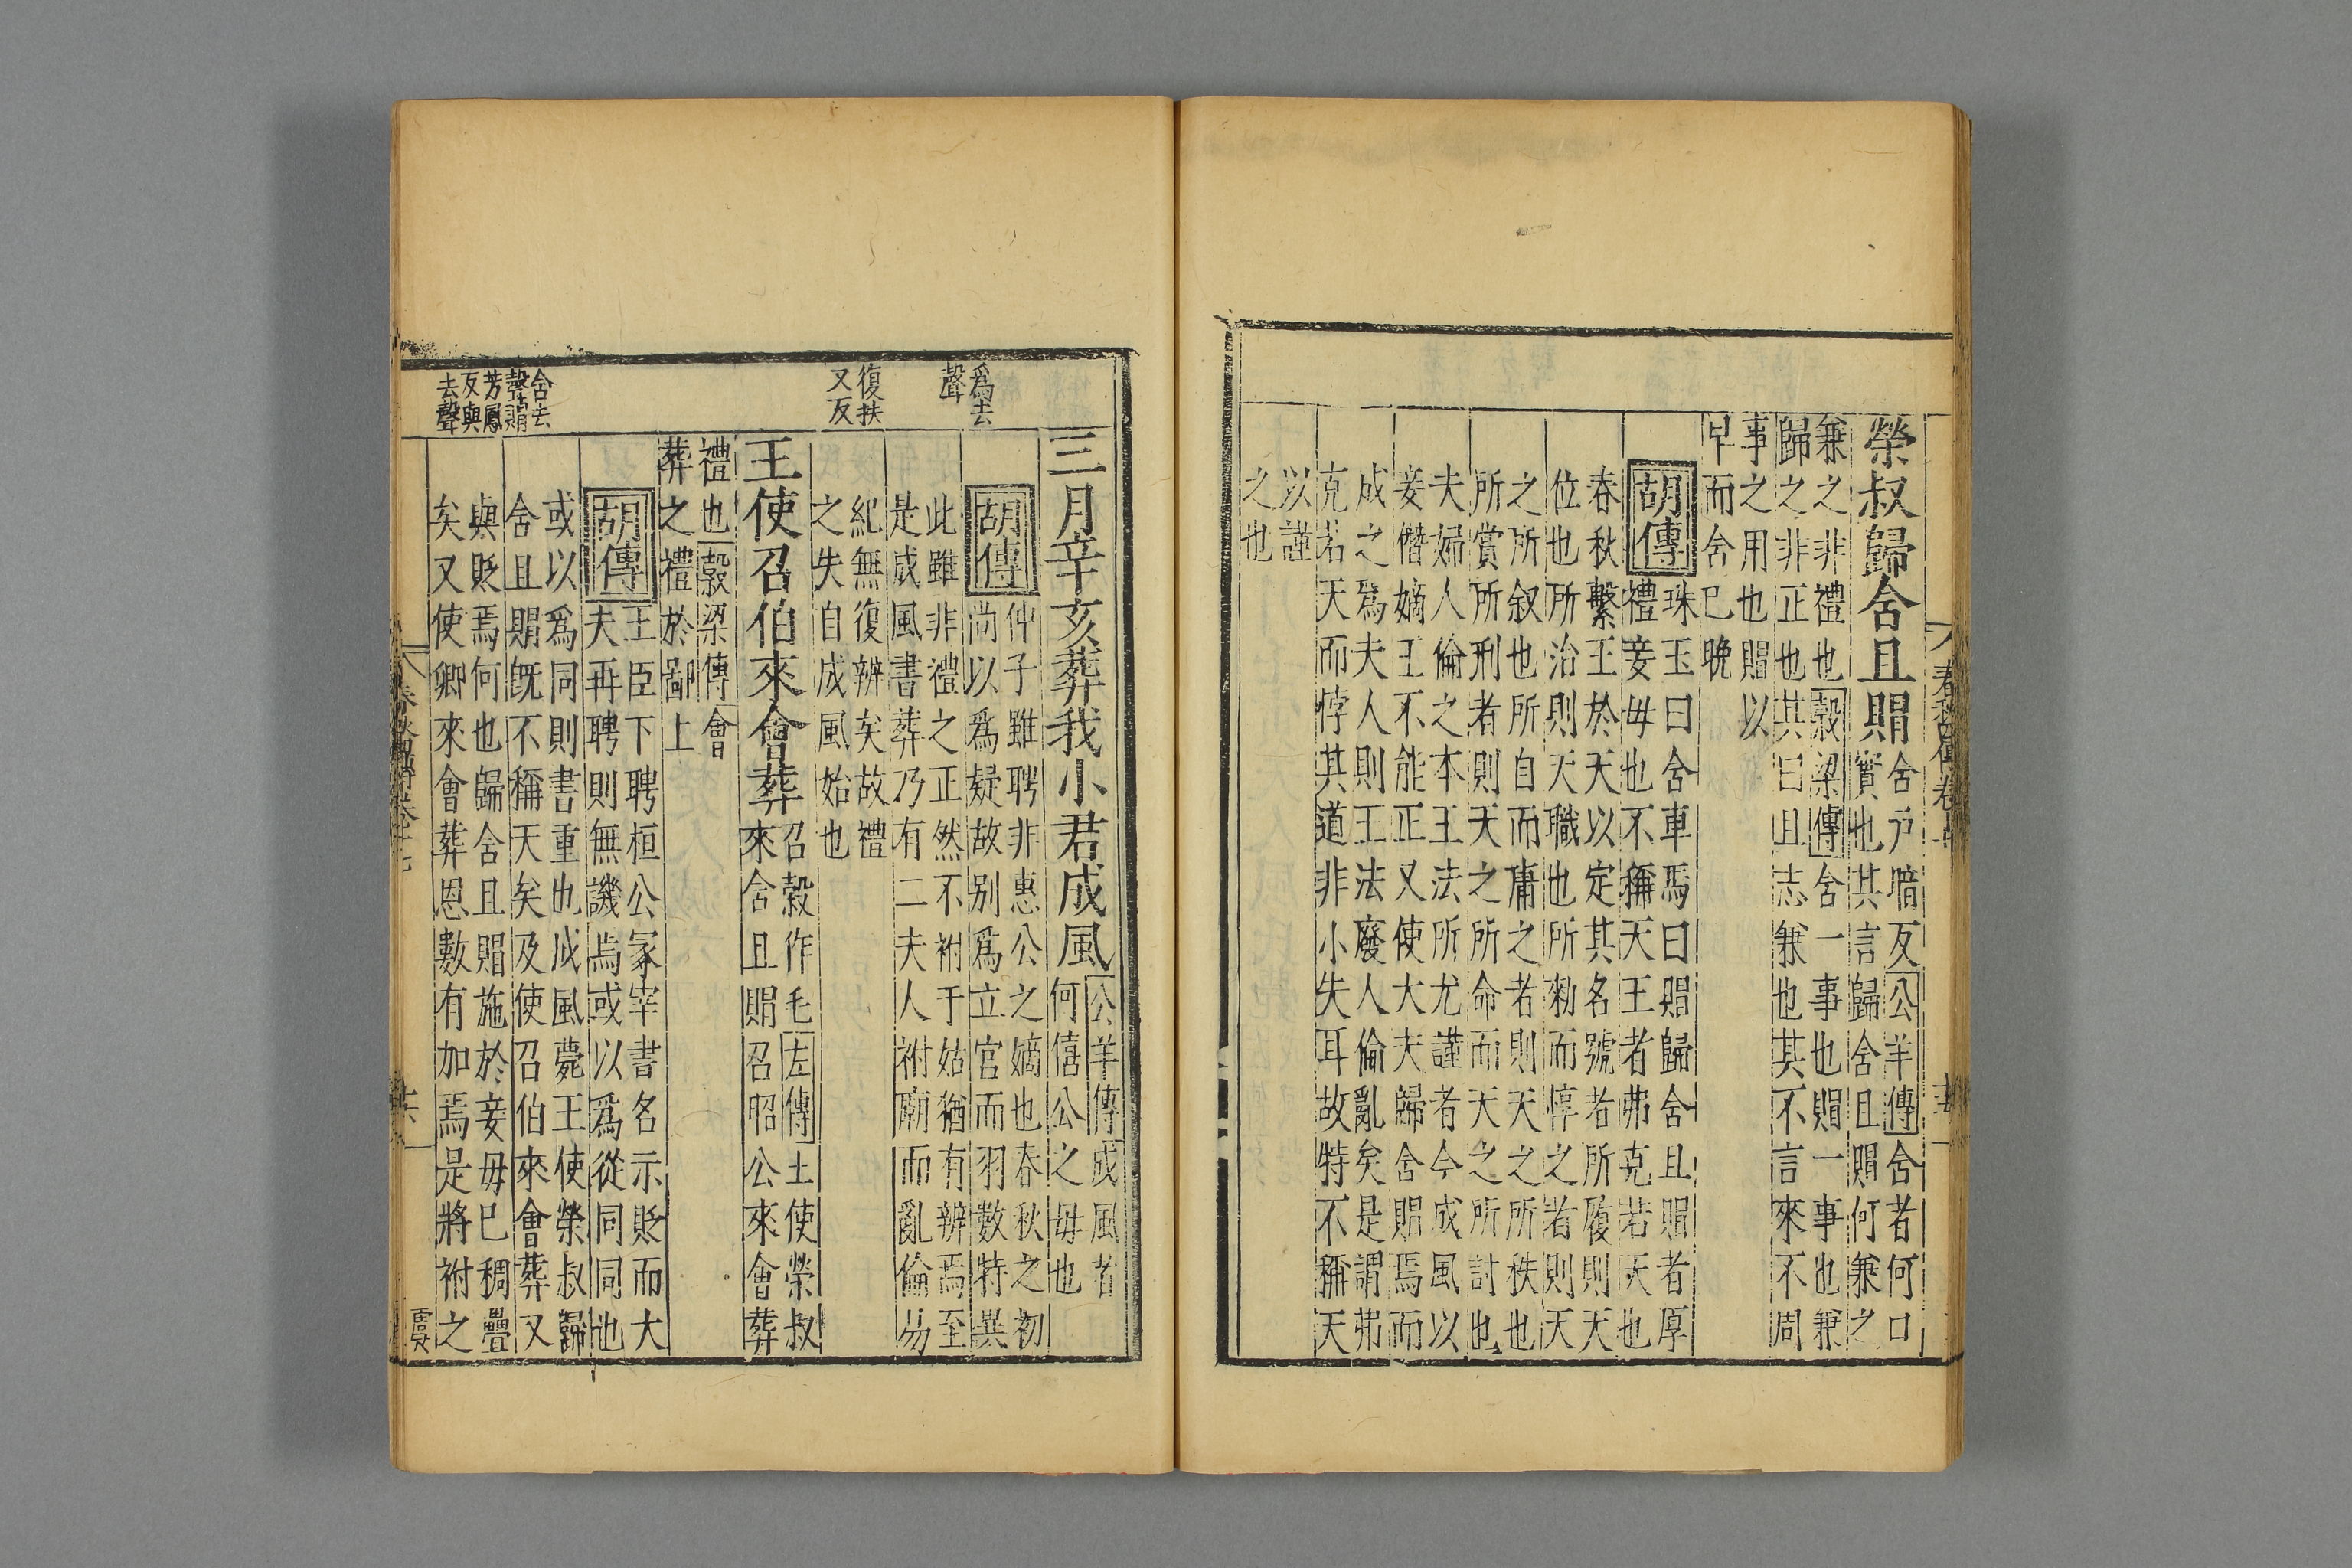 榮叔歸含且賵
含户暗反公羊傳含者何口
實也其言歸含且賵何兼之
兼之非禮也穀梁傳含一事也賵一事也兼
歸之非正也其曰且志兼也其不言來不周
事之用也賵以
早而含已晚
胡傳
珠玉曰含車馬曰賵歸含且賵者厚
禮妾毋也不稱天王者弗克若天也
春秋繫王於天以定其名號者所履則天
位也所治則天職也所勑而惇之者則天
之所叙也所自而庸之者則天之所秩也
所賞所刑者則天之所命而天之所討也
夫婦人倫之本王法所尤謹者今成風以
妾僭嫡王不能正又使大夫歸含賵焉而
成之爲夫人則王法廢人倫亂矣是謂弗
克若天而悖其道非小失耳故特不稱天
以謹
之也
三月辛亥葬我小君成風
公羊傳成風者
何僖公之毋也
爲去
聲
胡傳
仲子雖聘非惠公之嫡也春秋之初
尚以爲疑故别爲立宮而羽數特異
此雖非禮之正然不祔于姑猶有辨焉至
是成風書葬乃有二夫人祔廟而亂倫易
復扶
又反
紀無復辨矣故禮
之失自成風始也
王使召伯來會葬
召穀作毛左傳王使榮叔
來含且賵召昭公來會葬
禮也穀梁傳會
葬之禮於鄙上
胡傳
王臣下聘桓公冢宰書名示貶而大
夫再聘則無譏焉或以爲從同同也
含去
聲賵
芳鳳
反與
去聲
或以爲同則書重也成風薨王使榮叔歸
含且賵旣不稱天矣及使召伯來會葬又
與貶焉何也歸含且賵施於妾毋已稠疊
矣又使卿來會葬恩數有加焉是將祔之